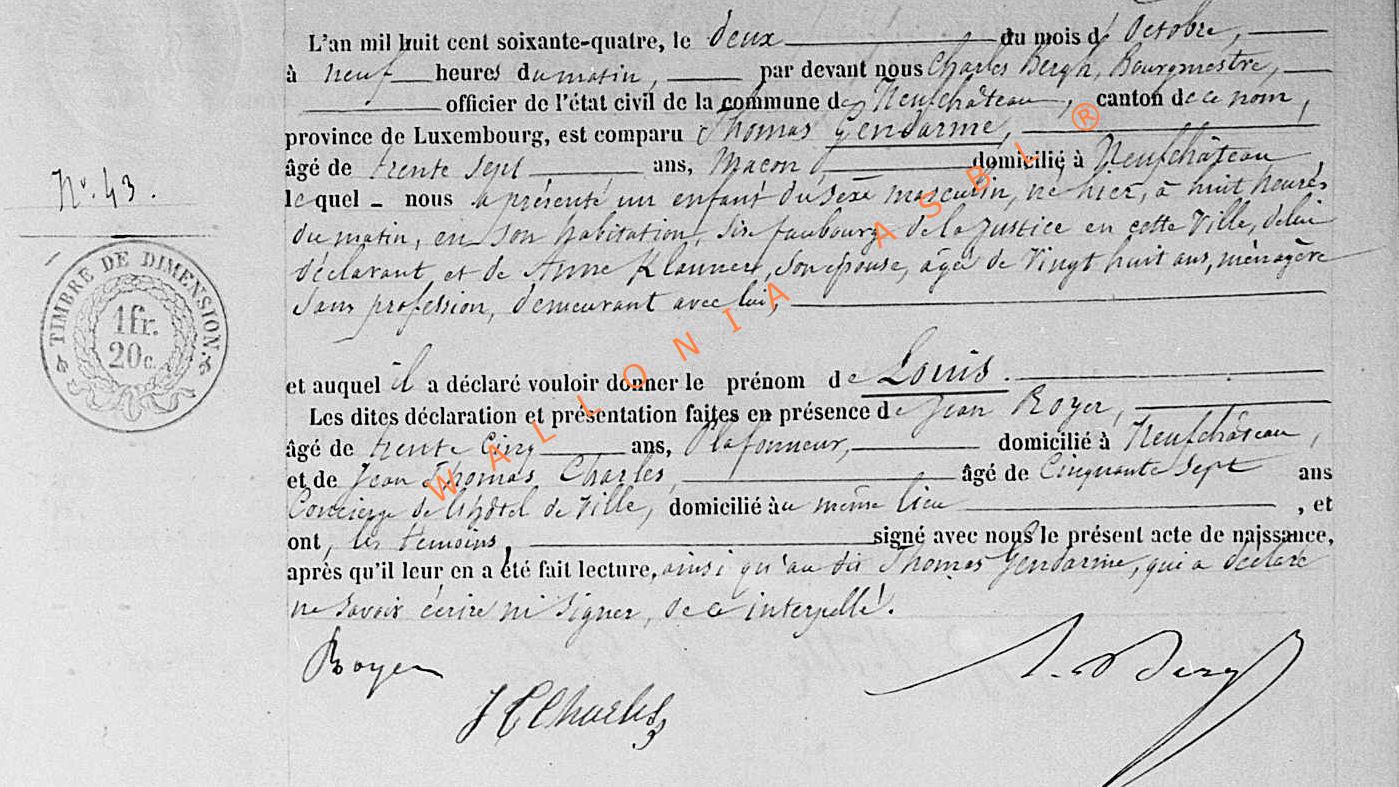 L'an mil huit cent soixante-quatre, le deux du mois d' Octobre,
à neuf heures du matin, par devant nous Charles Bergh, Bourgmestre,
officier de l'état civil de la commune de Neufchâteau, canton de ce nom,
province de Luxembourg, est comparu Thomas Gendarme,
N.° 43.
âgé de trente sept ans, Maçon domicilié à Neufchâteau,
lequel nous a présenté un enfant du sexe masculin, né hier, à huit heures
du matin, en son habitation, sise faubourg de la Justice en cette Ville, de lui
déclarant et de Anne son épouse, âgée de Vingt huit ans, ménagère
sans profession, demeurant avec lui,
TIMBRE DE DIMENSION.
1 fr.
20 c.
et auquel il a déclaré vouloir donner le prénom de Louis.
Les dites déclaration et présentation faites en présence de Jean Royer,
âgé de trente Cinq ans, Plafonneur, domicilié à Neufchâteau,
et de Jean Thomas Charles, âgé de Cinquante Sept ans
Concierge de l'hôtel de Ville, domicilié au même lieu, et
ont, les témoins, signé avec nous le présent acte de naissance,
après qu'il leur en a été fait lecture, ainsi qu'au dit Thomas Gendarme, qui a déclaré
ne savoir écrire ni signer, de ce interpellé.
Royer
J T Charles
WALLONIA ASBL ®